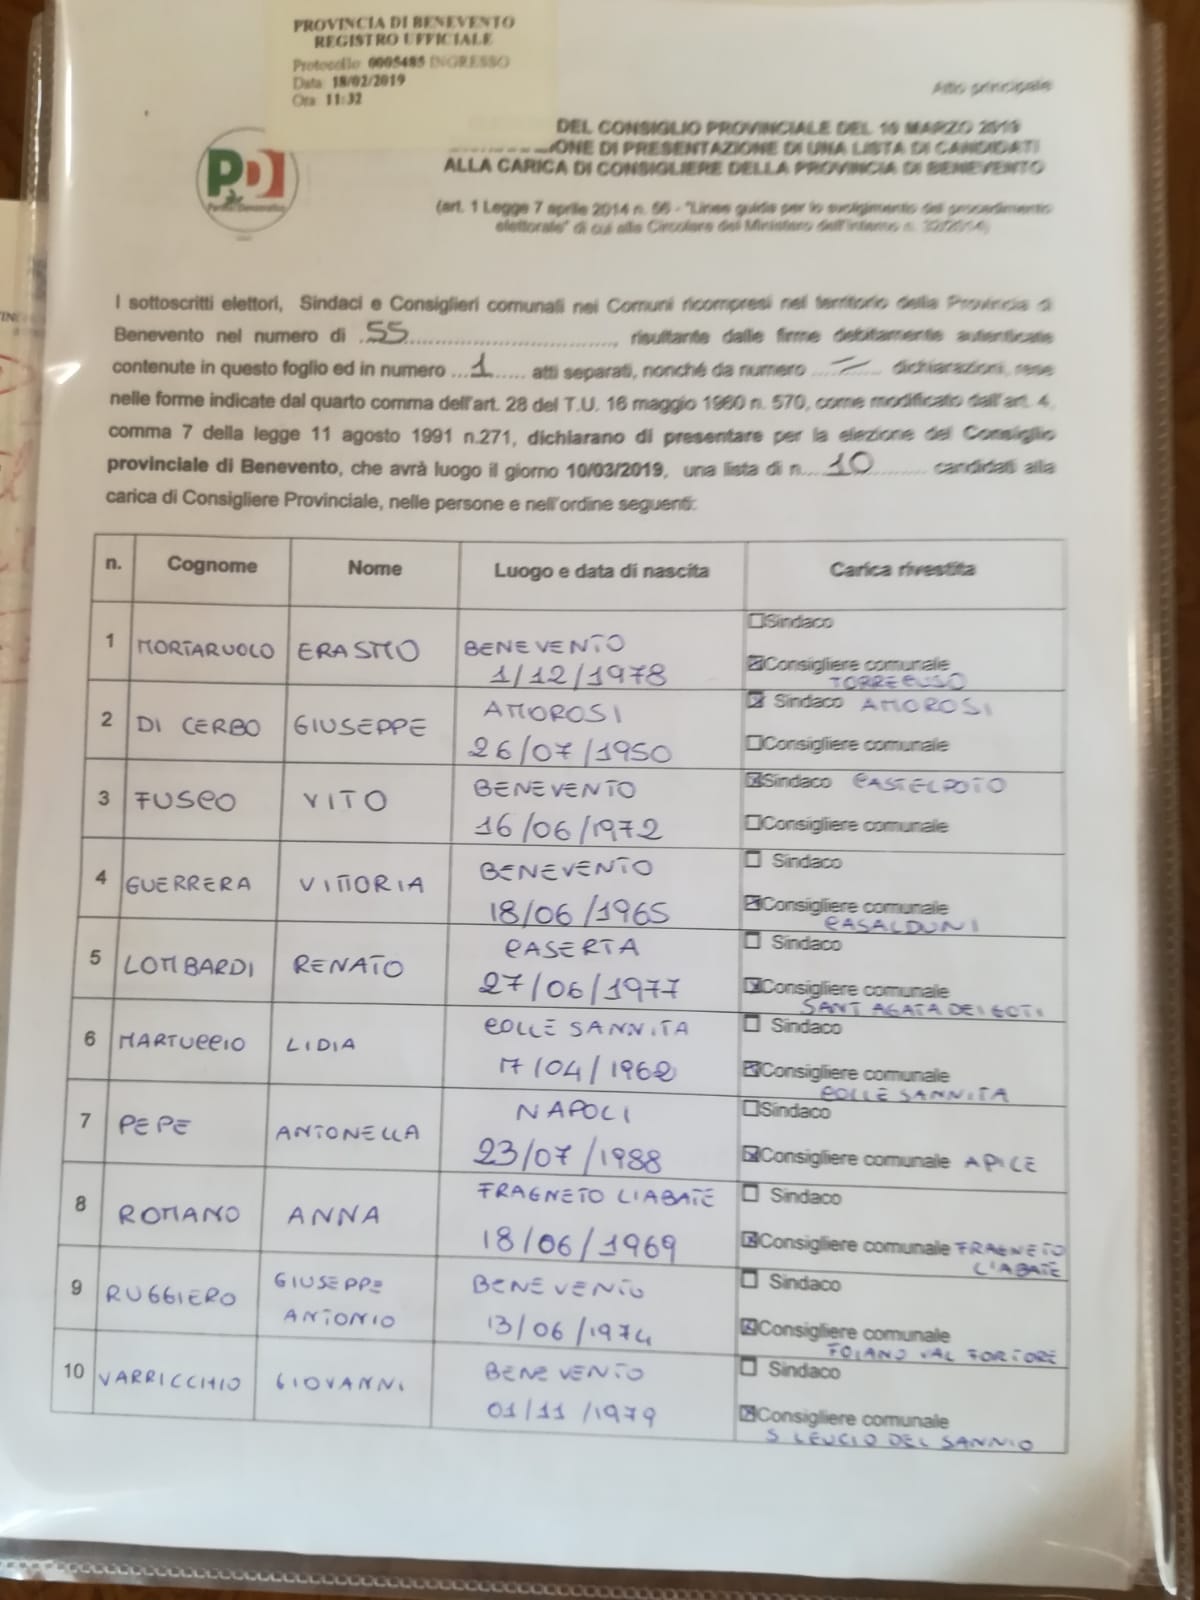 PROVINCIA DI BENEVENTO
REGISTRO UFFICIALE
Protocollo 0005485 INGRESSO
Data: 18/02/2019
Ora 11:32
Atto principale
DEL CONSIGLIO PROVINCIALE DEL 10 MARZO 2019
IONE DI PRESENTAZIONE DI UNA LISTA DI CANDIDATI
ALLA CARICA DI CONSIGLIERE DELLA PROVINCIA DI BENEVENTO
(art. 1 Legge 7 aprile 2014 n. 56 - "Linee guida per lo svolgimento del procedimento
elettorale" di cui alla Circolare del Ministero dell'interno n. 32/2014)
PD
Partito Democratico
I sottoscritti elettori, Sindaci e Consiglieri comunali nei Comuni ricompresi nel territorio della Provincia di
Benevento nel numero di 55 risultante dalle firme debitamente autenticate
contenute in questo foglio ed in numero ...1...... atti separati, nonché da numero dichiarazioni, rese
nelle forme indicate dal quarto comma dell'art. 28 del T.U. 16 maggio 1960 n. 570, come modificato dall'art. 4,
comma 7 della legge 11 agosto 1991 n.271, dichiarano di presentare per la elezione del Consiglio
provinciale di Benevento, che avrà luogo il giorno 10/03/2019, una lista di n. 10 candidati alla
carica di Consigliere Provinciale, nelle persone e nell'ordine seguenti:
n. Cognome Nome Luogo e data di nascita Carica rivestita
1 MORTARUOLO ERASMO BENEVENTO Sindaco
1/12/1978 Consigliere comunale
TORRECUSO
2 DI CERBO GIUSEPPE AMOROSI Sindaco AMOROSI
26/07/1950 Consigliere comunale
3 FUSCO VITO BENEVENTO Sindaco CASTELPOTO
16/06/1972 Consigliere comunale
4 GUERRERA VITTORIA BENEVENTO Sindaco
18/06/1965 Consigliere comunale
CASALDUNI
5 LOMBARDI RENATO CASERTA Sindaco
27/06/1977 Consigliere comunale
SANT AGATA DEI GOTI
6 MARTUCCIO LIDIA COLLE SANNITA Sindaco
17/04/1962 Consigliere comunale
COLLE SANNITA
7 PEPE ANTONELLA NAPOLI Sindaco
23/07/1988 Consigliere comunale APICE
8 ROMANO ANNA FRAGNETO L'ABATE Sindaco
18/06/1969 Consigliere comunale FRAGNETO
L'ABATE
9 RUGGIERO GIUSEPPE BENEVENTO Sindaco
ANTONIO 13/06/1974 Consigliere comunale
FOIANO VAL FORTORE
10 VARRICCHIO GIOVANNI BENEVENTO Sindaco
01/11/1979 Consigliere comunale
S LEUCIO DEL SANNIO